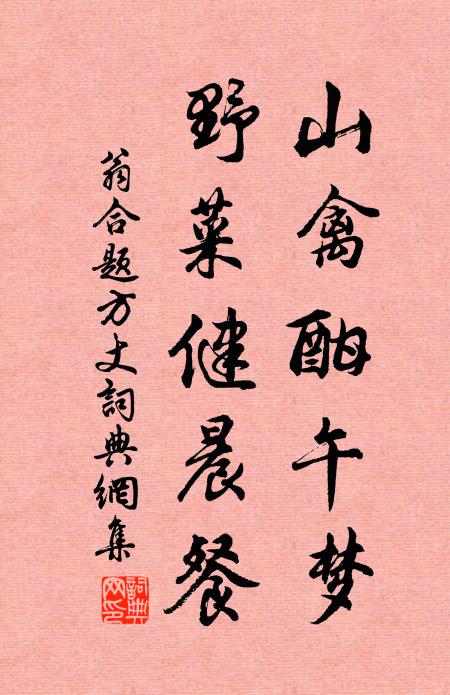 山禽酣午梦
野菜健晨餐
翁合题方丈词典網集
詞典网印